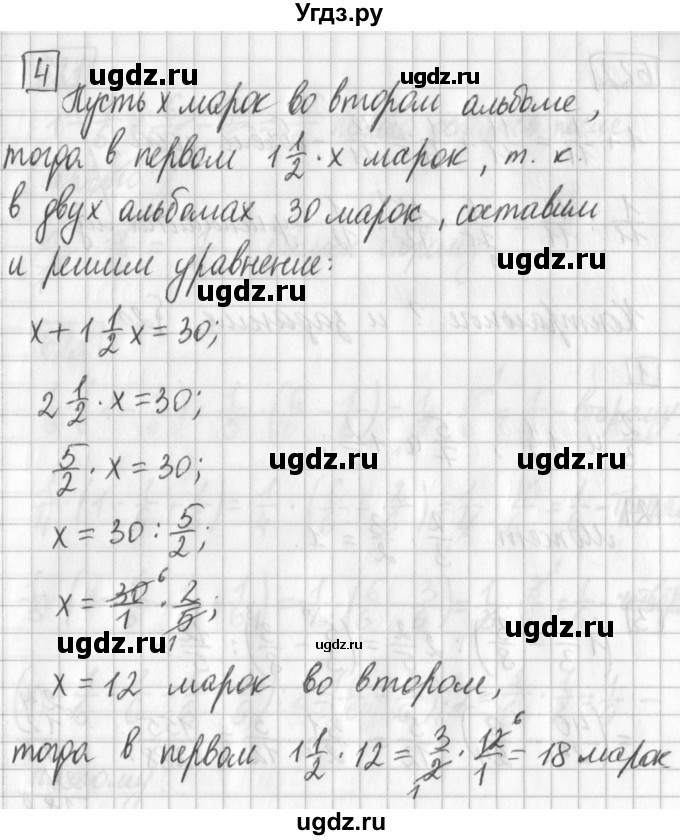 Угдз.ру
4
ugdz.ru ugdz.ru
Пусть x марок во втором альбоме,
тогда в первом 1 1/2 · x марок, т. к.
в двух альбомах 30 марок, составим
ugdz.ru
и решим уравнение:
ugdz.ru
x + 1 1/2 x = 30;
2 1/2 · x = 30;
5/2 · x = 30;
ugdz.ru ugdz.ru
x = 30 : 5/2;
x = 30/1 · 2/5; 6 1
ugdz.ru ugdz.ru ugdz.ru
x = 12 марок во втором,
тогда в первом 1 1/2 · 12 = 3/2 · 12/1 = 18 марок 6 1
ugdz.ru ugdz.ru